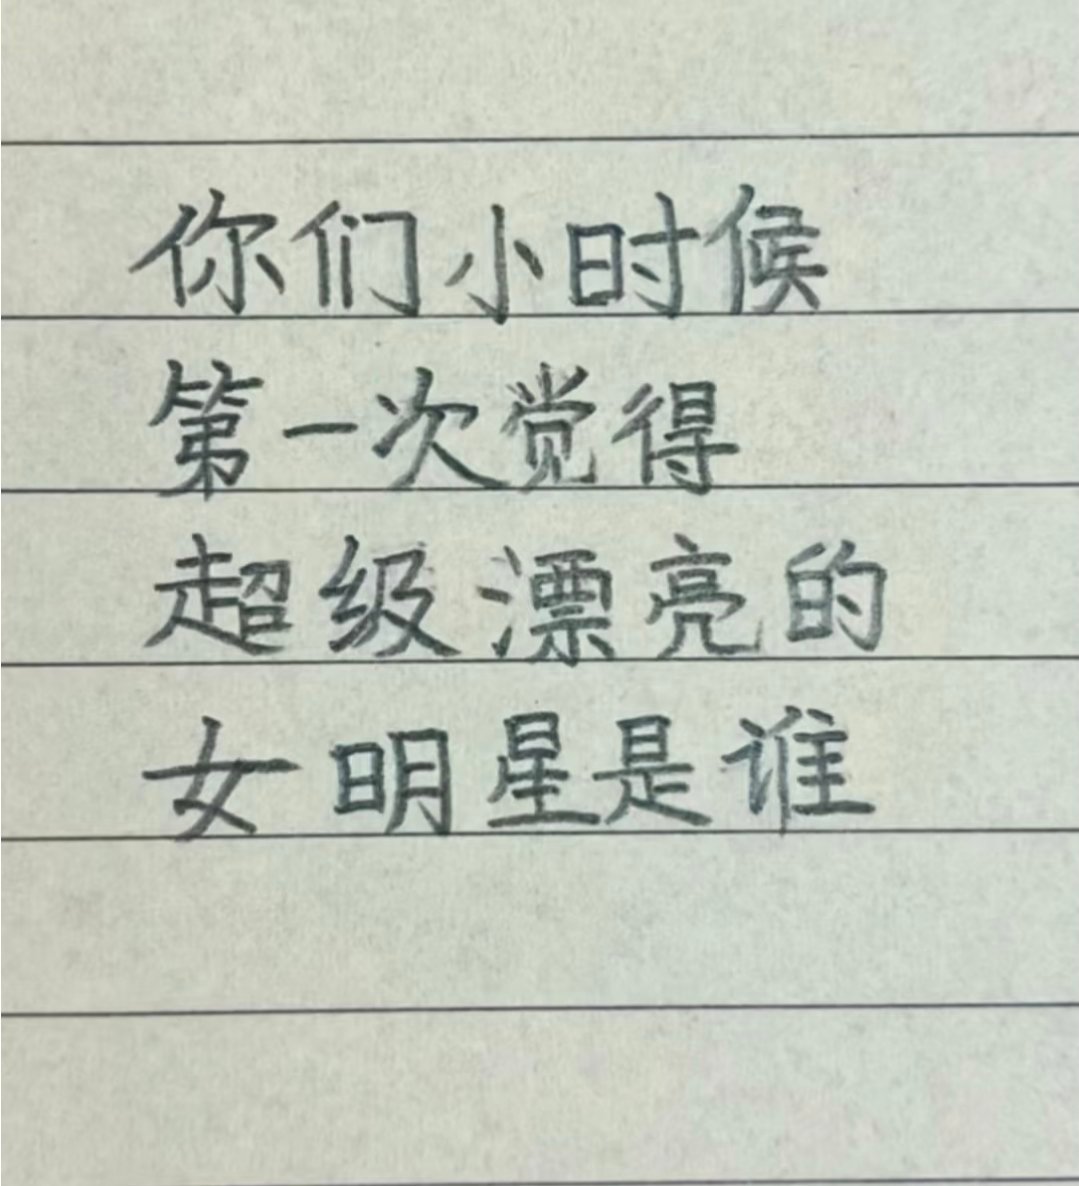 你们小时候
第一次觉得
超级漂亮的
女明星是谁